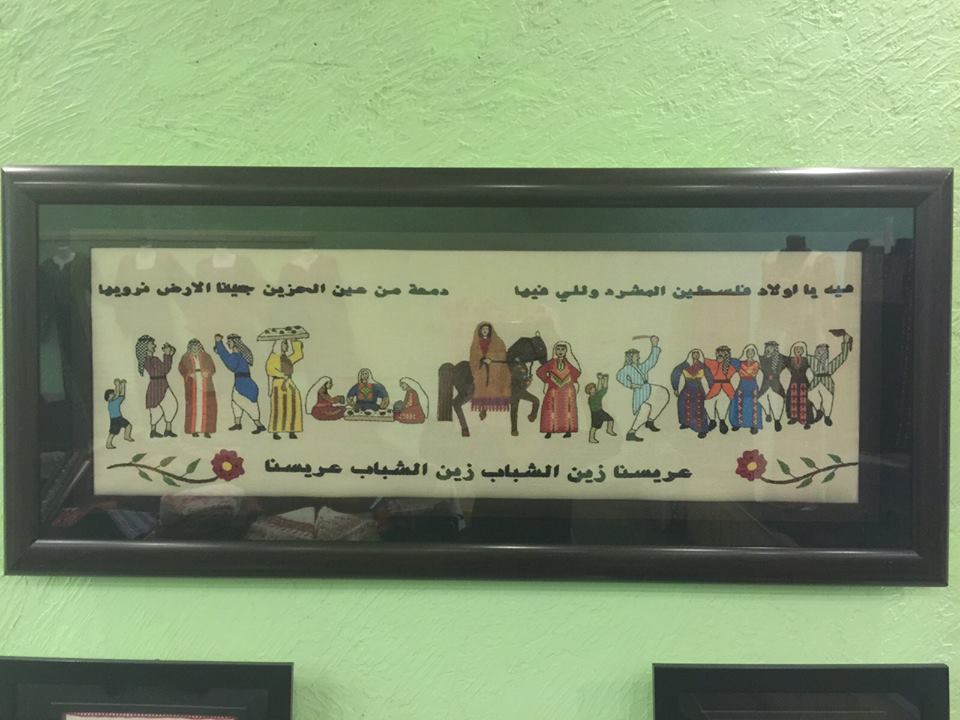 هيه يا اولاد فلسطين المشرد واللي فيها دمعة من عين الحزين جينا الارض نرويها
عريسنا زين الشباب زين الشباب عريسنا